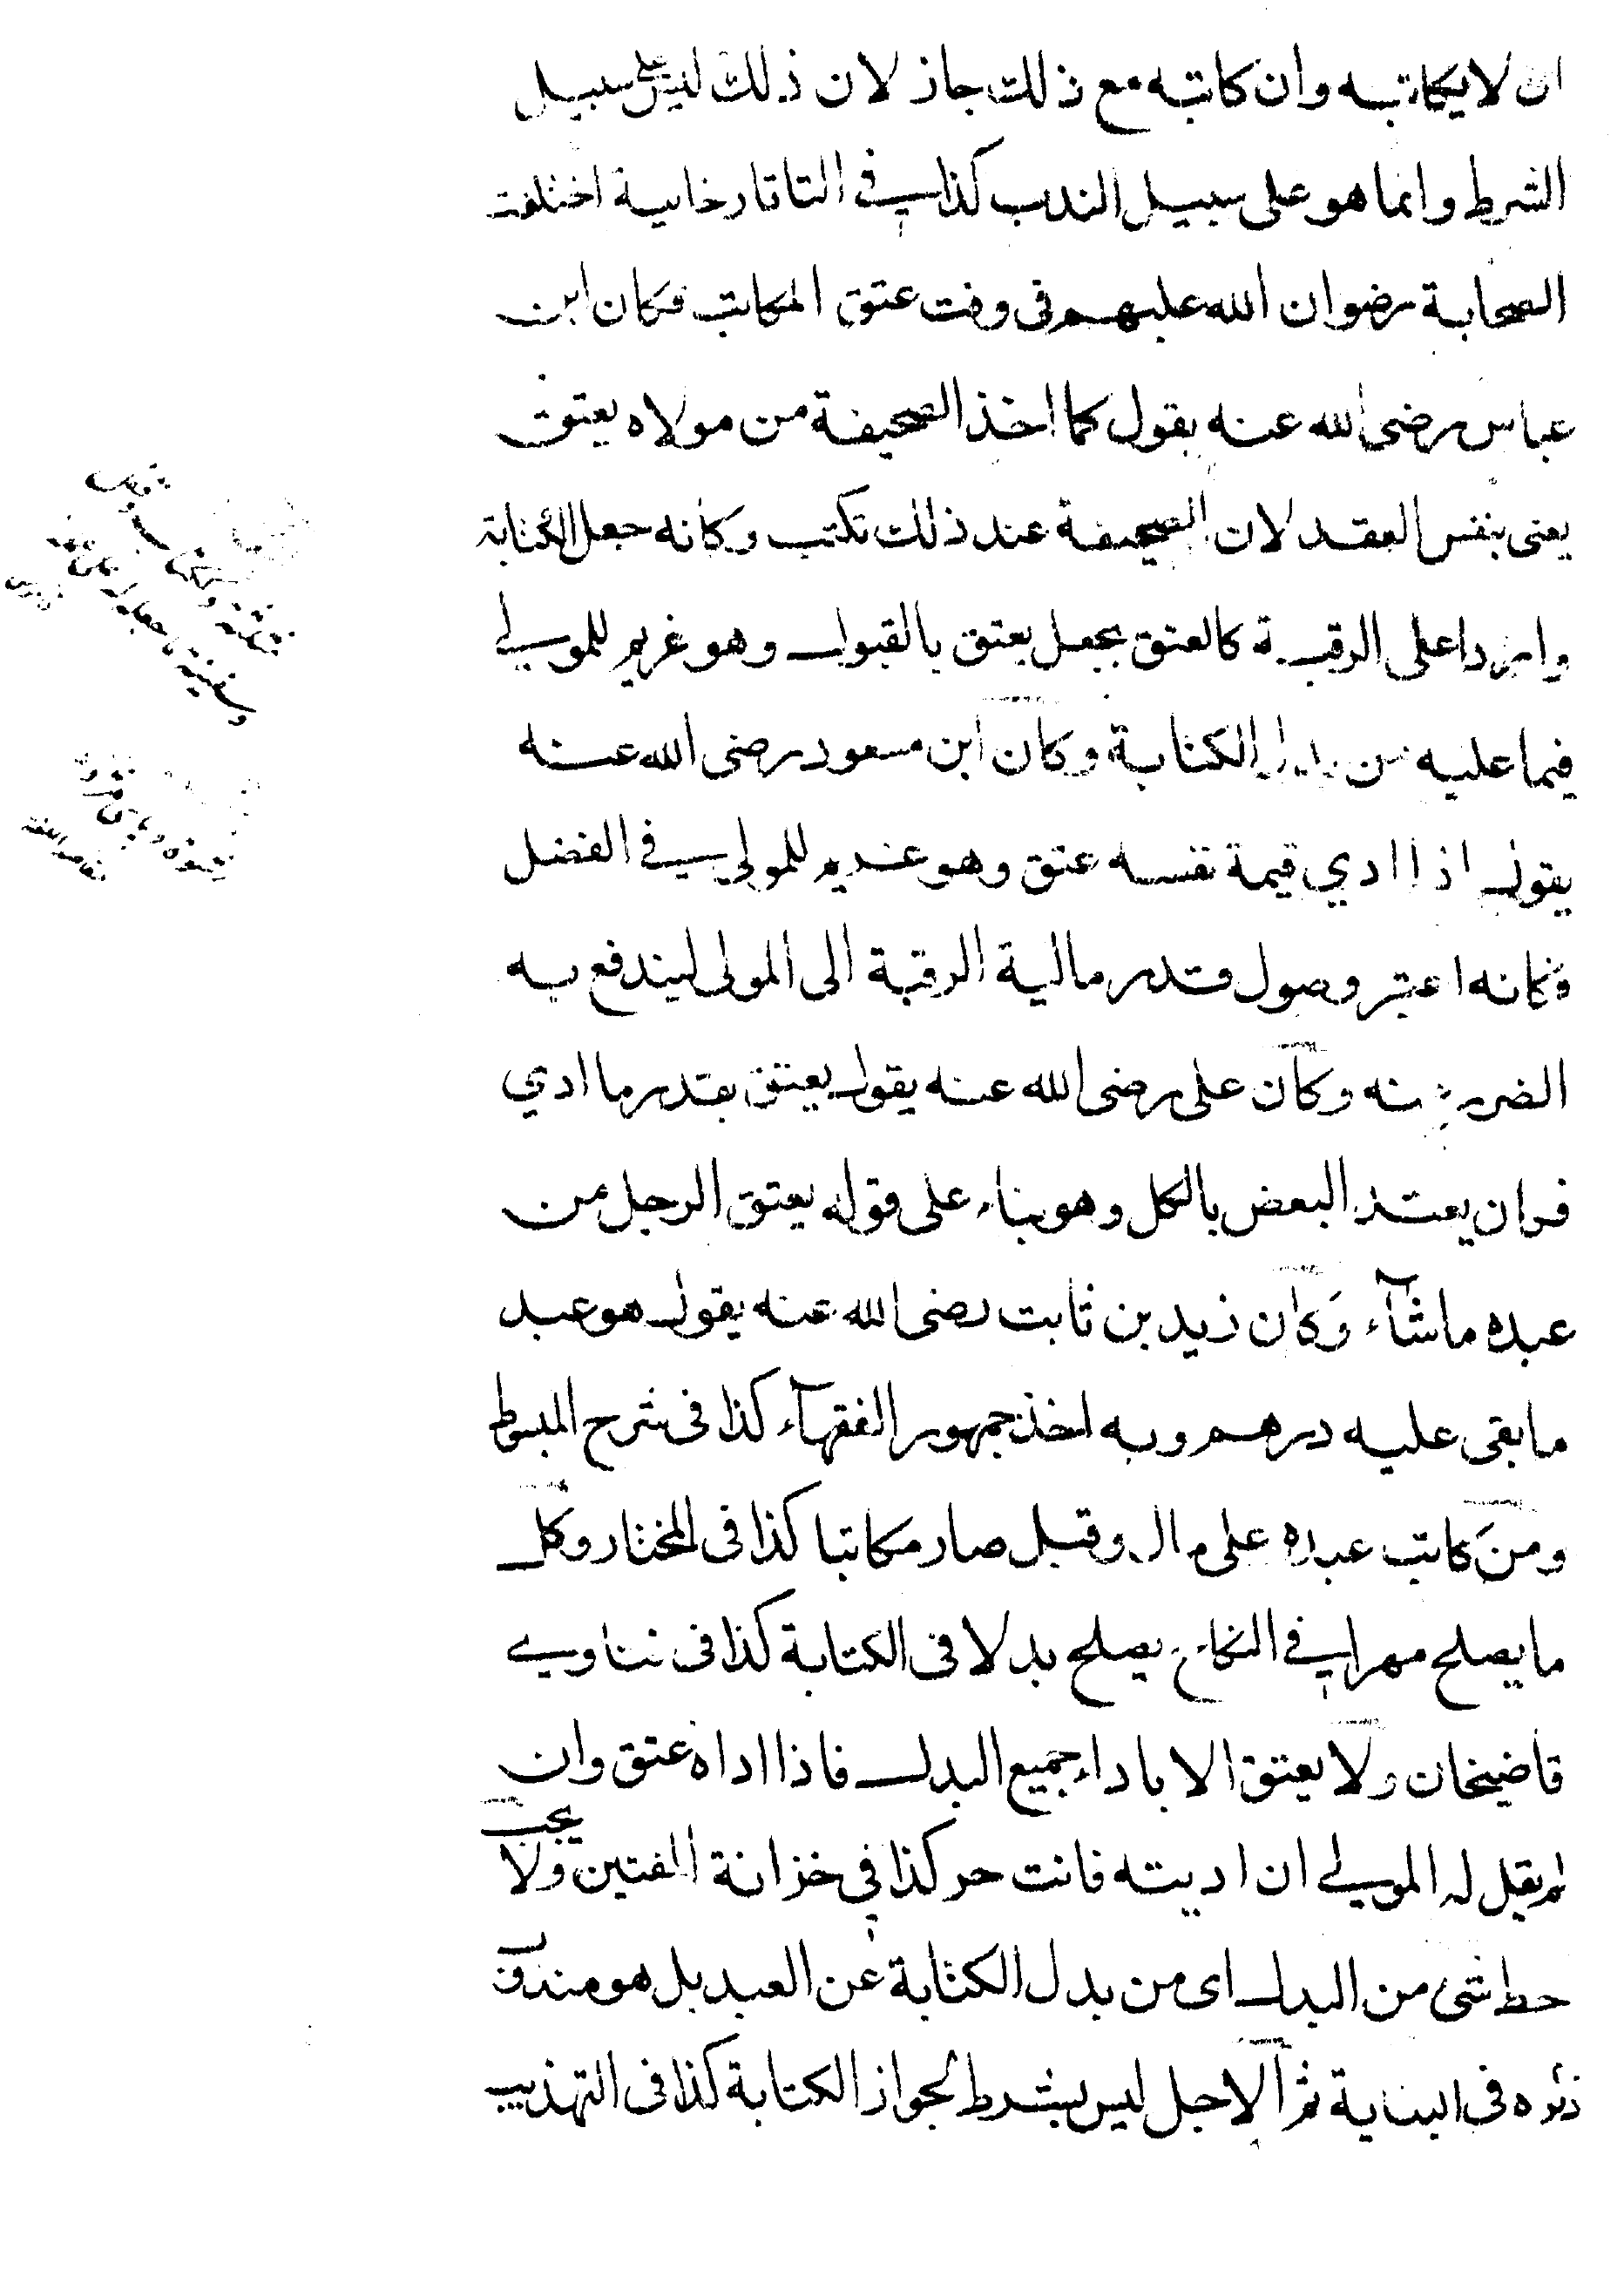 ان لا يكاتبه وان كاتبه مع ذلك جاز لان ذلك ليس على سبيل
الشرط وانما هو على سبيل الندب كذا في التاتارخانية اختلفت
الصحابة رضوان الله عليهم فى وقت عتق المكاتب فكان ابن
عباس رضى الله عنه يقول كما اخذ الصحيفة من مولاه يعتق
يعنى بنفس العقد لان الصحيفة عند ذلك تكتب وكانه جعل الكتابة
واردا على الرقبة كالعتق بجعل يعتق بالقبول وهو غريم للمولى
فيما عليه من بدل الكتابة وكان ابن مسعود رضى الله عنه
يقول اذا ادي قيمة نفسه عتق وهو غريم للمولى في الفضل
فكانه اعتبر وصول قدر مالية الرقبة الى المولى ليندفع به
الضرر عنه وكان على رضى الله عنه يقول يعتق بقدر ما ادي
البعض بالكل وهو بناء على قوله يعتق الرجل من
عبده ما شآء وكان زيد بن ثابت رضى الله عنه يقول هو عبد
ما بقى عليه درهم وبه اخذ جمهور الفقهآء كذا فى شرح المبسوط
ومن كاتب عبده على مال وقبل صار مكاتبا كذا فى المختار وكل
ما يصلح مهرا في النكاح يصلح بدلا فى الكتابة كذا فى فتاوي
قاضيخان ولا يعتق الا باداء جميع البدل فاذا اداه عتق وان
لم يقل له المولى ان اديته فانت حر كذا في خزانة المفتين ولا يجب
حط شى من البدل اى من بدل الكتابة عن العبد بل هو مندوب
ذكره فى البناية ثم الاجل ليس بشرط لجواز الكتابة كذا فى التهذيب